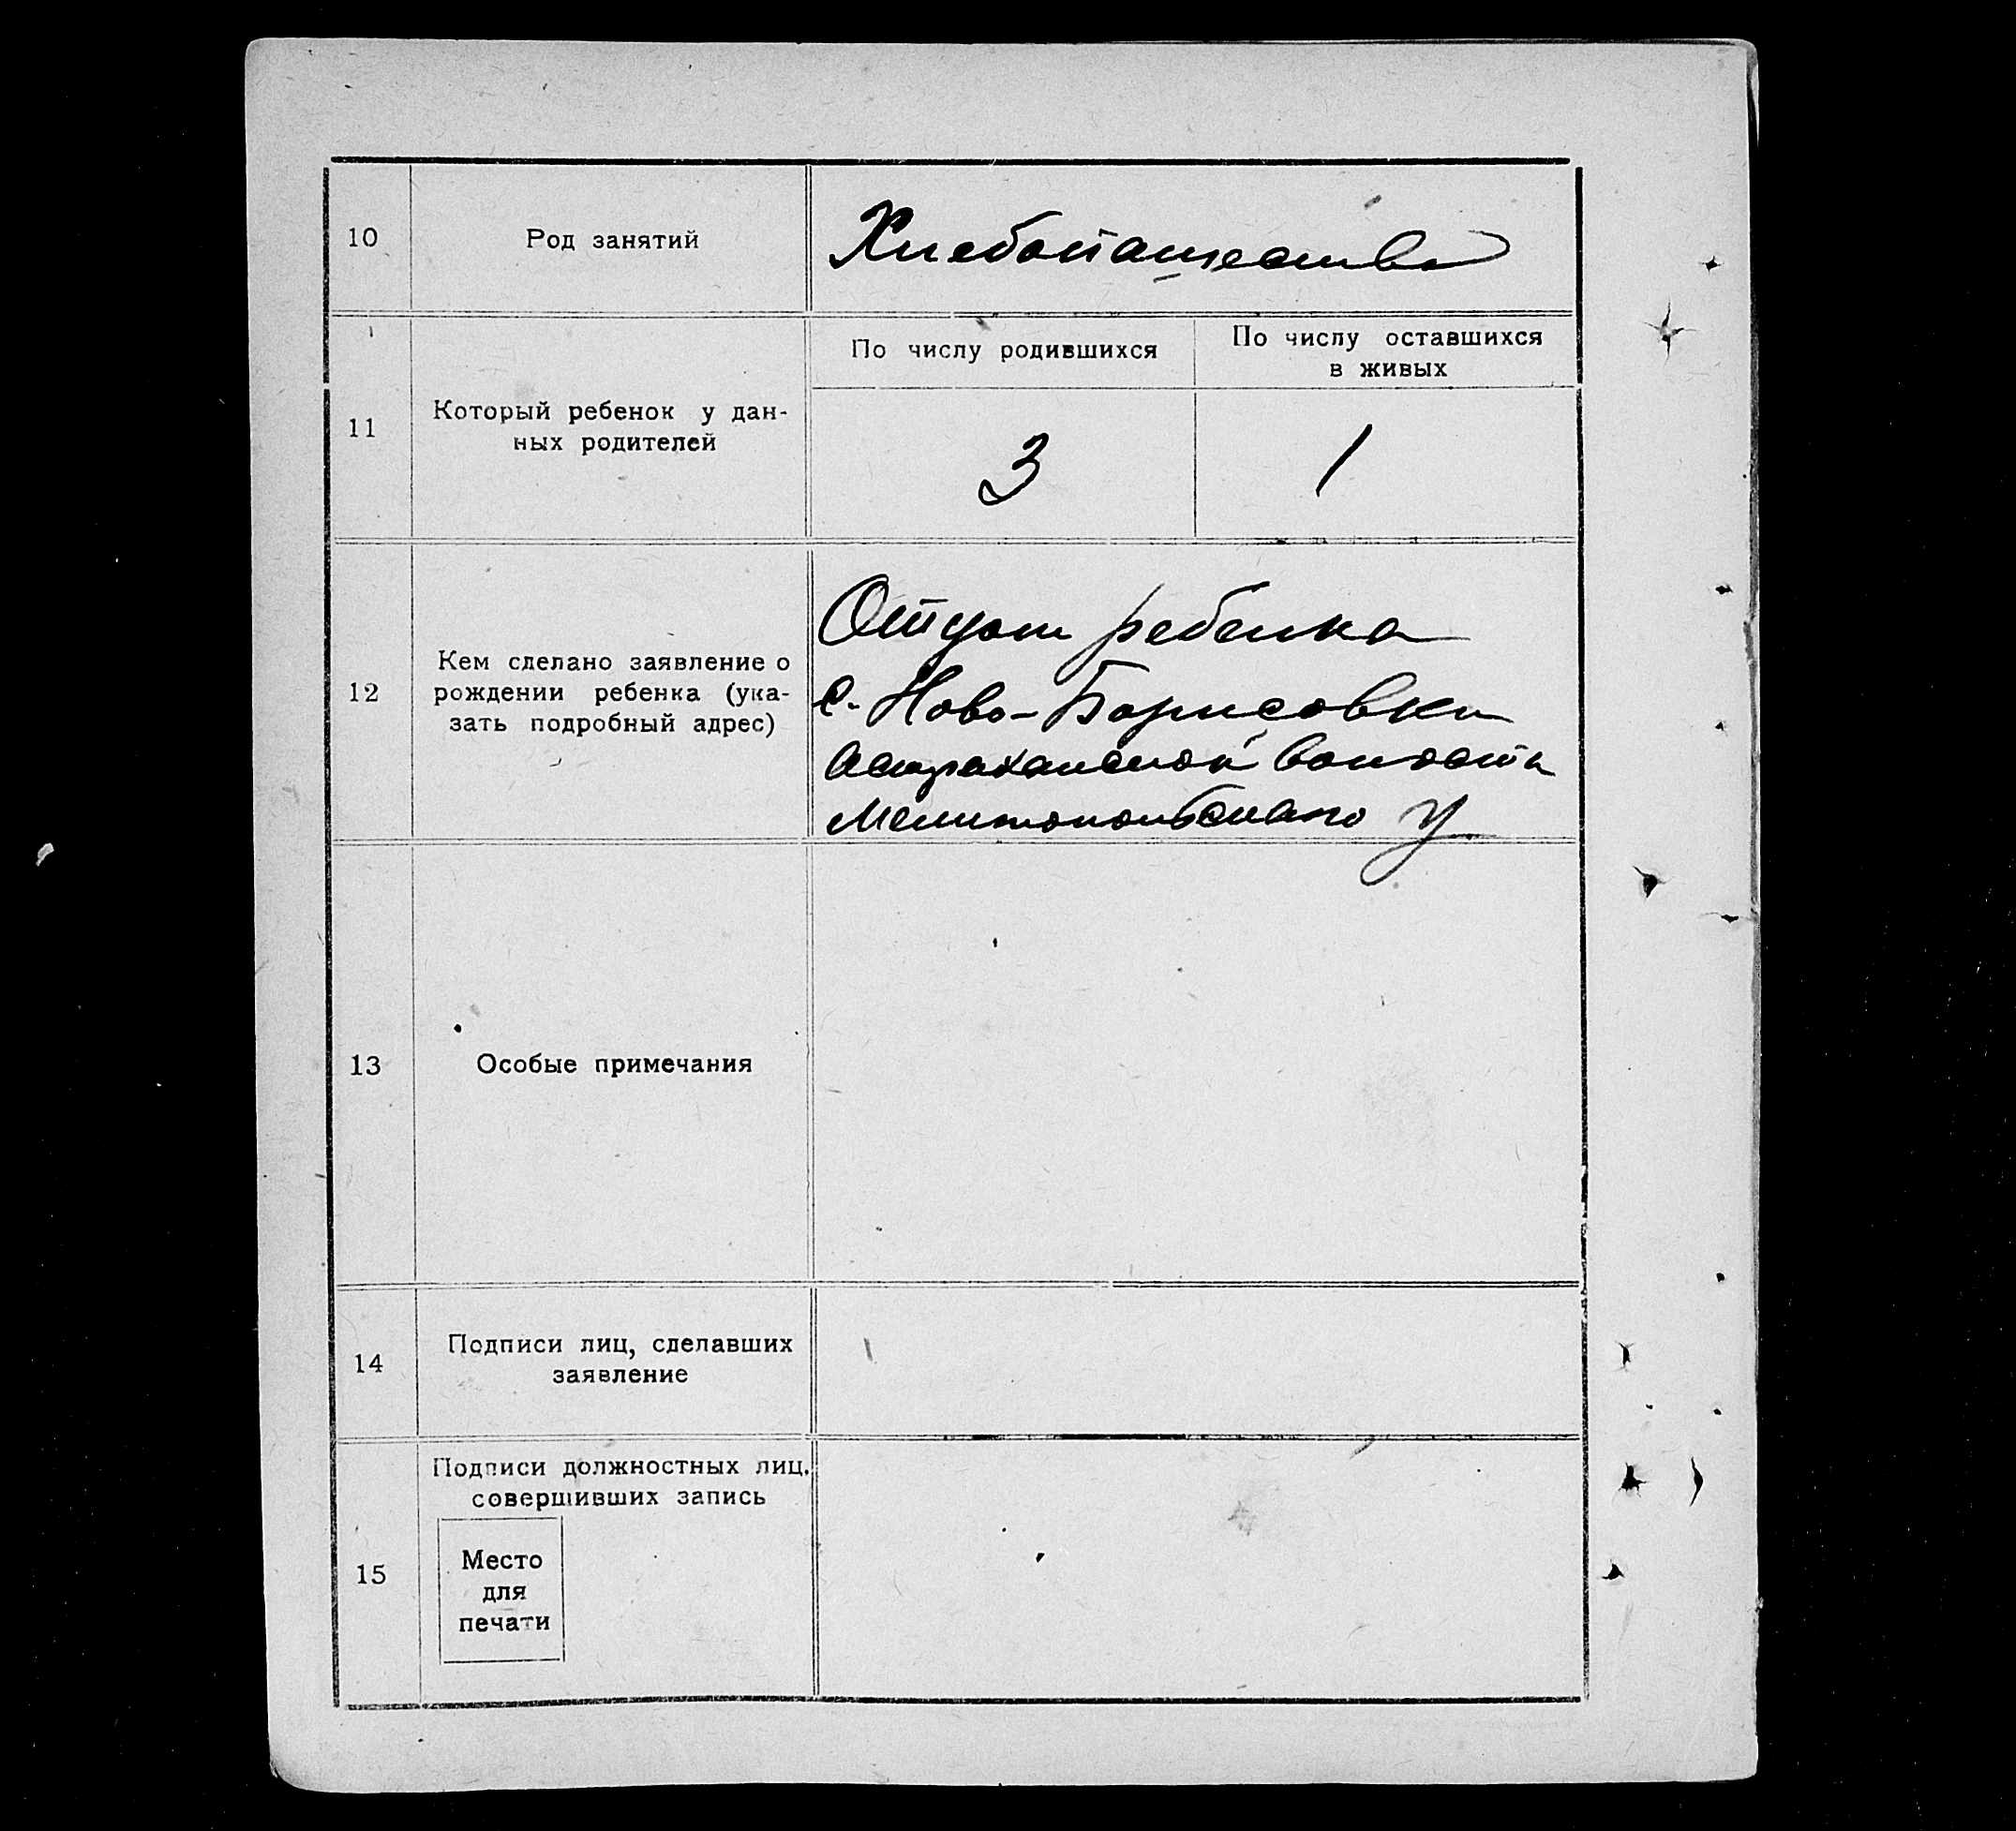 10
Род занятий
Хлебопашество
11
Который ребенок у дан-
ных родителей
По числу родившихся
По числу оставшихся
в живых
3
1
12
Кем сделано заявление о
рождении ребенка (ука-
зать подробный адрес)
Отцом ребенка
с. Ново-Борисовки
Астраханской волости
Мелитопольскаго у.
13
Особые примечания
14
Подписи лиц, сделавших
заявление
15
Подписи должностных лиц,
совершивших запись
Место
для
печати